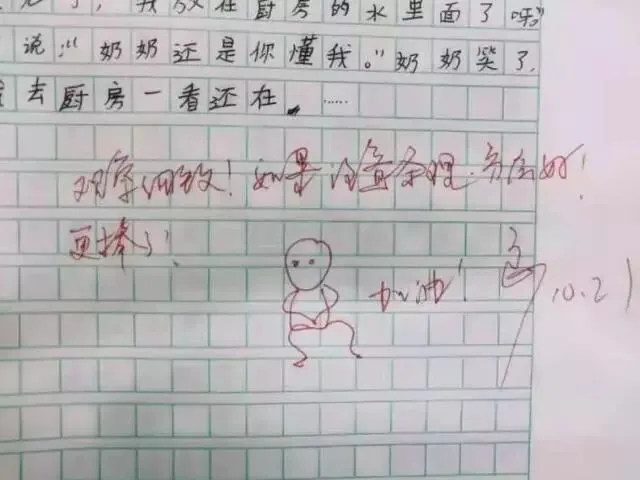 了，我放在厨房的水里面了呀。”
说：“奶奶还是你懂我。”奶奶笑了，
去厨房一看还在。……
观察细致！如果注意条理，书写好！
更棒了！
加油！
10.21